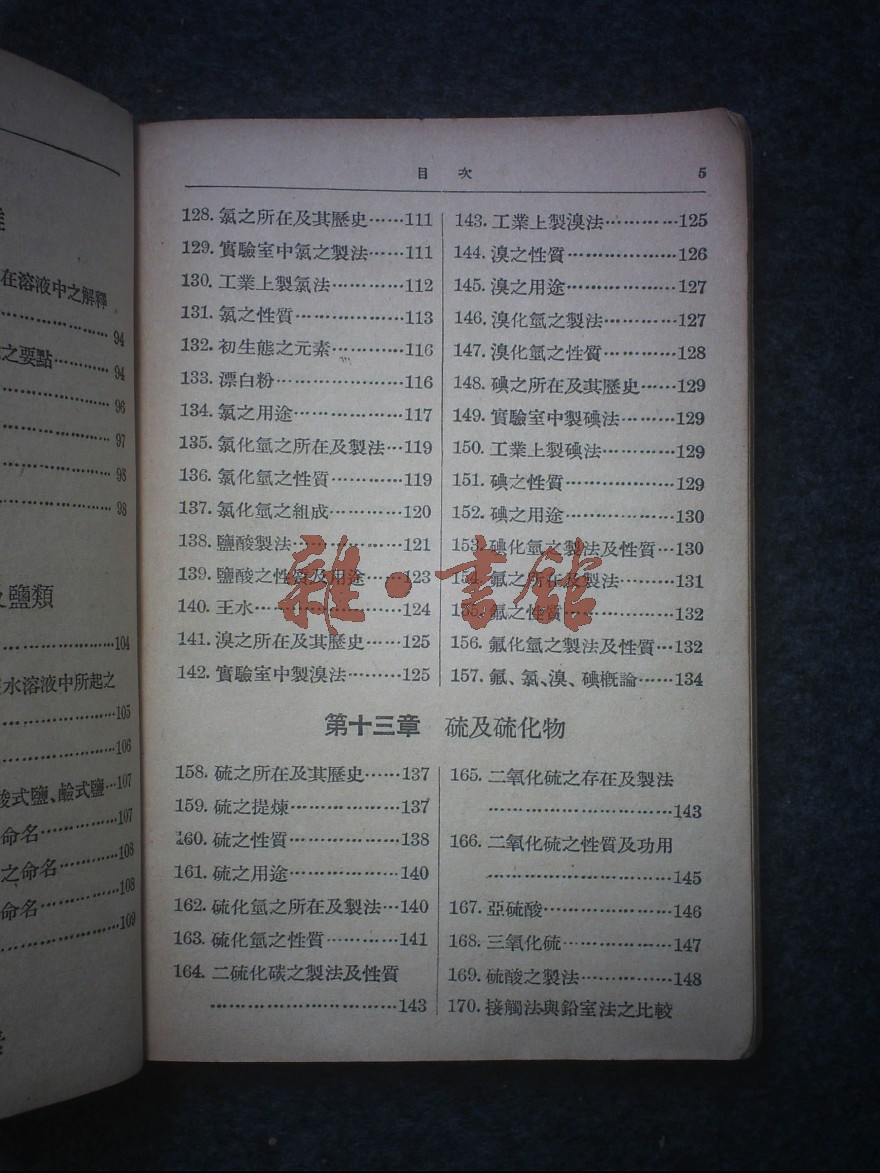 在溶液中之解釋
94
之要點…………94
96
97
98
98
鹽類
104
水溶液中所起之
105
106
酸式鹽、鹼式鹽…107
命名…………107
之命名…………108
命名…………108
109
目 次 5
128. 氯之所在及其歷史……111
129. 實驗室中氯之製法……111
130. 工業上製氯法…………112
131. 氯之性質………………113
132. 初生態之元素…………116
133. 漂白粉…………………116
134. 氯之用途………………117
135. 氯化氫之所在及製法…119
136. 氯化氫之性質…………119
137. 氯化氫之組成…………120
138. 鹽酸製法………………121
139. 鹽酸之性質及用途……123
140. 王水……………………124
141. 溴之所在及其歷史……125
142. 實驗室中製溴法………125
143. 工業上製溴法…………125
144. 溴之性質………………126
145. 溴之用途………………127
146. 溴化氫之製法…………127
147. 溴化氫之性質…………128
148. 碘之所在及其歷史……129
149. 實驗室中製碘法………129
150. 工業上製碘法…………129
151. 碘之性質………………129
152. 碘之用途………………130
153. 碘化氫之製法及性質…130
154. 氟之所在及製法………131
155. 氟之性質………………132
156. 氟化氫之製法及性質…132
157. 氟、氯、溴、碘概論……134
第十三章 硫及硫化物
158. 硫之所在及其歷史……137
159. 硫之提煉………………137
160. 硫之性質………………138
161. 硫之用途………………140
162. 硫化氫之所在及製法…140
163. 硫化氫之性質…………141
164. 二硫化碳之製法及性質
…………………………143
165. 二氧化硫之存在及製法
…………………………143
166. 二氧化硫之性質及功用
…………………………145
167. 亞硫酸…………………146
168. 三氧化硫………………147
169. 硫酸之製法……………148
170. 接觸法與鉛室法之比較
雜·書館